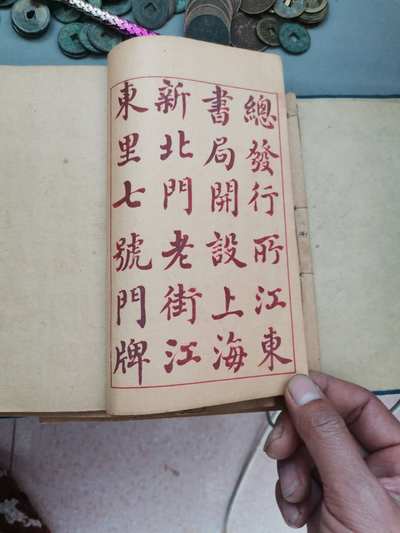 總發行所江東
書局開設上海
新北門老街江
東里七號門牌